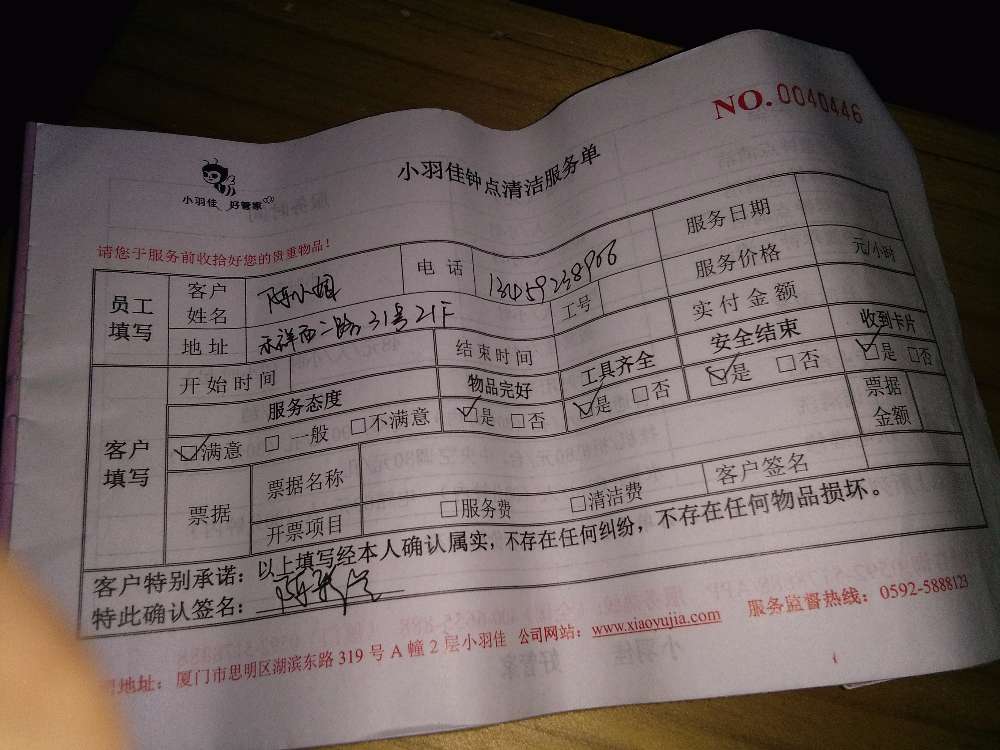 NO.0040446
小羽佳 好管家
小羽佳钟点清洁服务单
请您于服务前收拾好您的贵重物品！
员工填写 客户姓名 陈小姐 电话 服务日期
地址 祥西二路31号21F 工号 服务价格 元/小时
客户填写 开始时间 结束时间 实付金额
服务态度 物品完好 工具齐全 安全结束 收到卡片
☑满意 □一般 □不满意 ☑是 □否 ☑是 □否 ☑是 □否 ☑是 □否
票据 票据名称 票据金额
开票项目 □服务费 □清洁费 客户签名
客户特别承诺：以上填写经本人确认属实，不存在任何纠纷，不存在任何物品损坏。
特此确认签名：
地址：厦门市思明区湖滨东路319号A幢2层小羽佳 公司网站：www.xiaoyujia.com 服务监督热线：0592-5888123